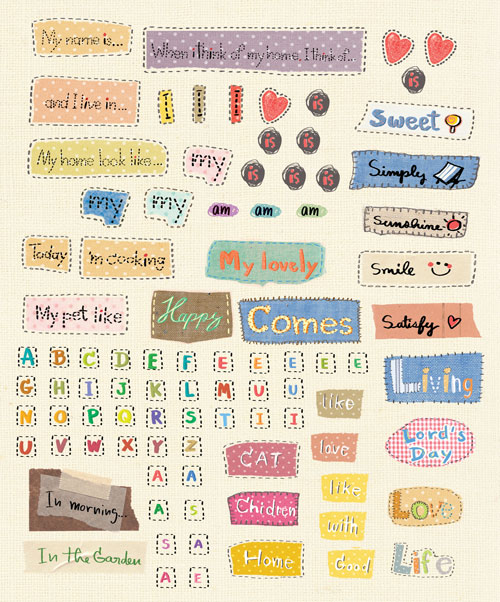 My name is...
When i Think of my home, I think of...
and I live in...
i
i
i
is
is
is
is
is
is
Sweet
My home look like...
my
Simply
my
my
am
am
am
Sunshine
Today
i'm cooking
My lovely
Smile
My pet like
Happy
Comes
Satisfy
A B C D E F E E E E E
G H I J K L M U U
N O P Q R S T I I
U V W X Y Z
Living
like
love
Lord's
Day
CAT
A A
like
In morning...
A S
Chidren
with
Love
In the Garden
S A
Home
Good
Life
A E